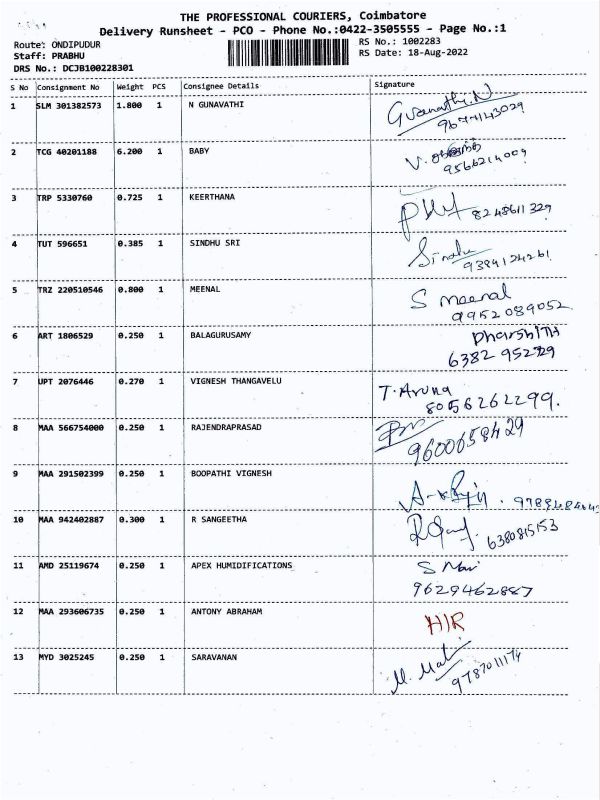 THE PROFESSIONAL COURIERS, Coimbatore
Delivery Runsheet - PCO - Phone No.:0422-3505555 - Page No.:1
Route: ONDIPUDUR RS No.: 1002283
Staff: PRABHU RS Date: 18-Aug-2022
DRS No.: DCJB100228301
S No Consignment No Weight PCS Consignee Details Signature
1 SLM 301382573 1.800 1 N GUNAVATHI
2 TCG 40201188 6.200 1 BABY
9566214009
3 TRP 5330760 0.725 1 KEERTHANA
8248611329
4 TUT 596651 0.385 1 SINDHU SRI Sindhu
9384124261
5 TRZ 220510546 0.800 1 MEENAL S meenal
9952089052
6 ART 1806529 0.250 1 BALAGURUSAMY DharshITH
6382 952729
7 UPT 2076446 0.270 1 VIGNESH THANGAVELU T. Aruna
8056262299.
8 MAA 566754000 0.250 1 RAJENDRAPRASAD
9600658429
9 MAA 291502399 0.250 1 BOOPATHI VIGNESH
10 MAA 942402887 0.300 1 R SANGEETHA
6380815153
11 AMD 25119674 0.250 1 APEX HUMIDIFICATIONS S Mani
9629462887
12 MAA 293606735 0.250 1 ANTONY ABRAHAM H/R
13 MYD 3025245 0.250 1 SARAVANAN M. Mali
9787011174